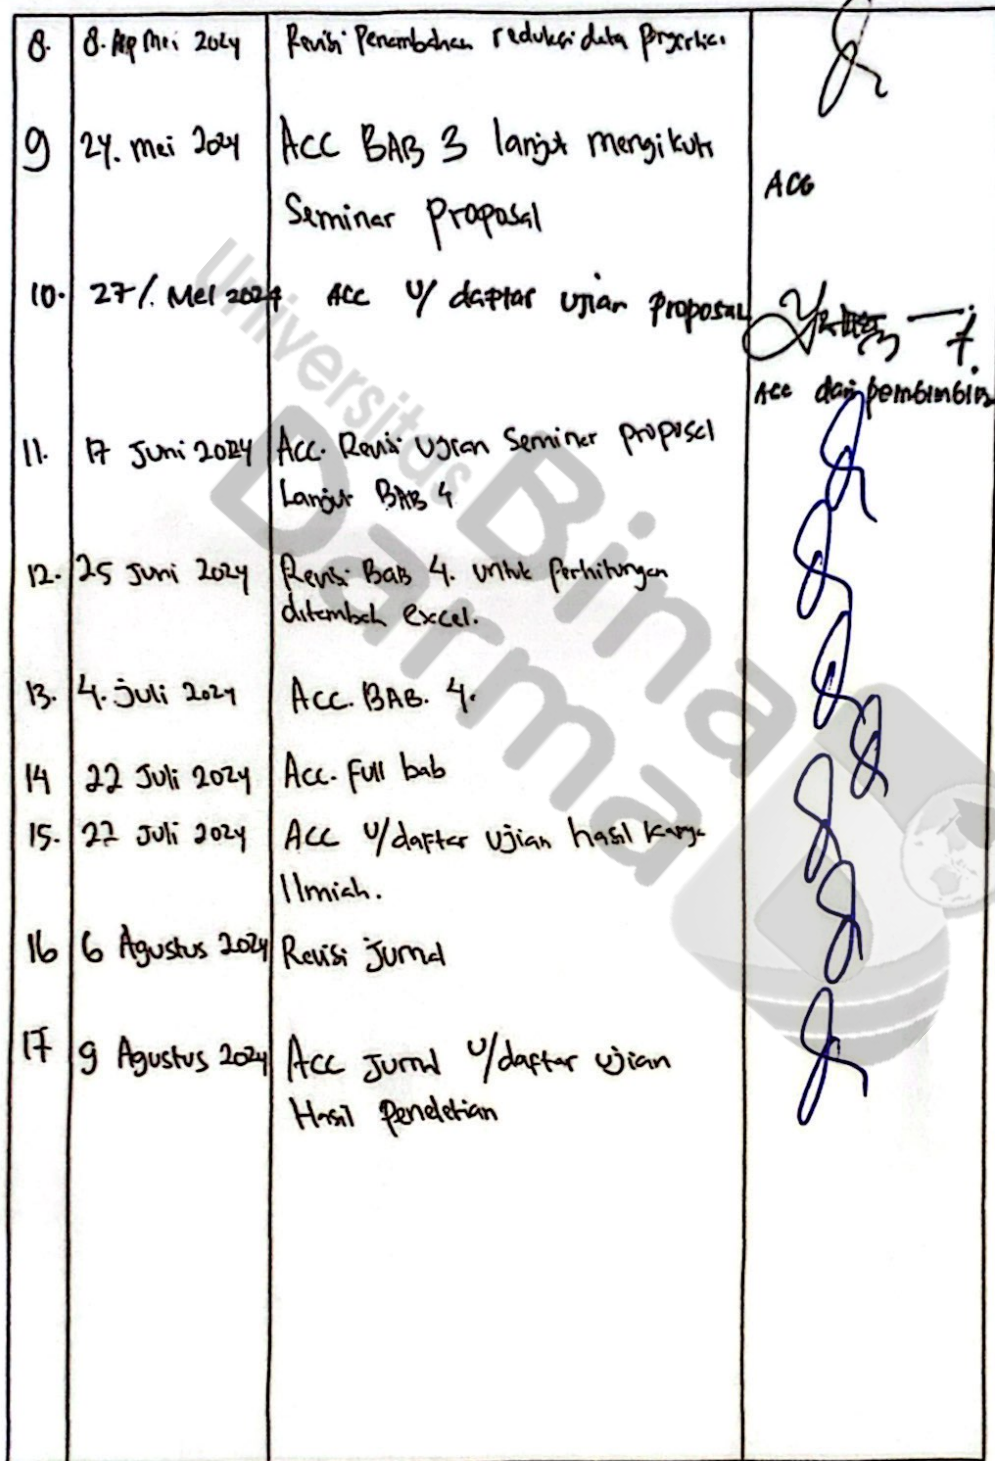 8. 8. Mei 2024 Revisi Penambahan reduksi data
9 24. mei 2024 ACC BAB 3 lanjut mengikuti
Seminar Proposal
ACC
10. 27/. Mei 2024 Acc U/ daftar Ujian proposal
Acc dari pembimbing
11. 17 Juni 2024 Acc. Revisi Ujian Seminar proposal
Lanjut BAB 4
12. 25 Juni 2024 Revisi Bab 4. untuk Perhitungan
ditambah excel.
13. 4. juli 2024 Acc. BAB. 4.
14 22 Juli 2024 Acc. Full bab
15. 22 Juli 2024 Acc U/daftar Ujian hasil Karya
Ilmiah.
16 6 Agustus 2024 Revisi Jurnal
17 9 Agustus 2024 Acc Jurnal U/daftar Ujian
Hasil Peneletian
Universitas
Bina
Darma